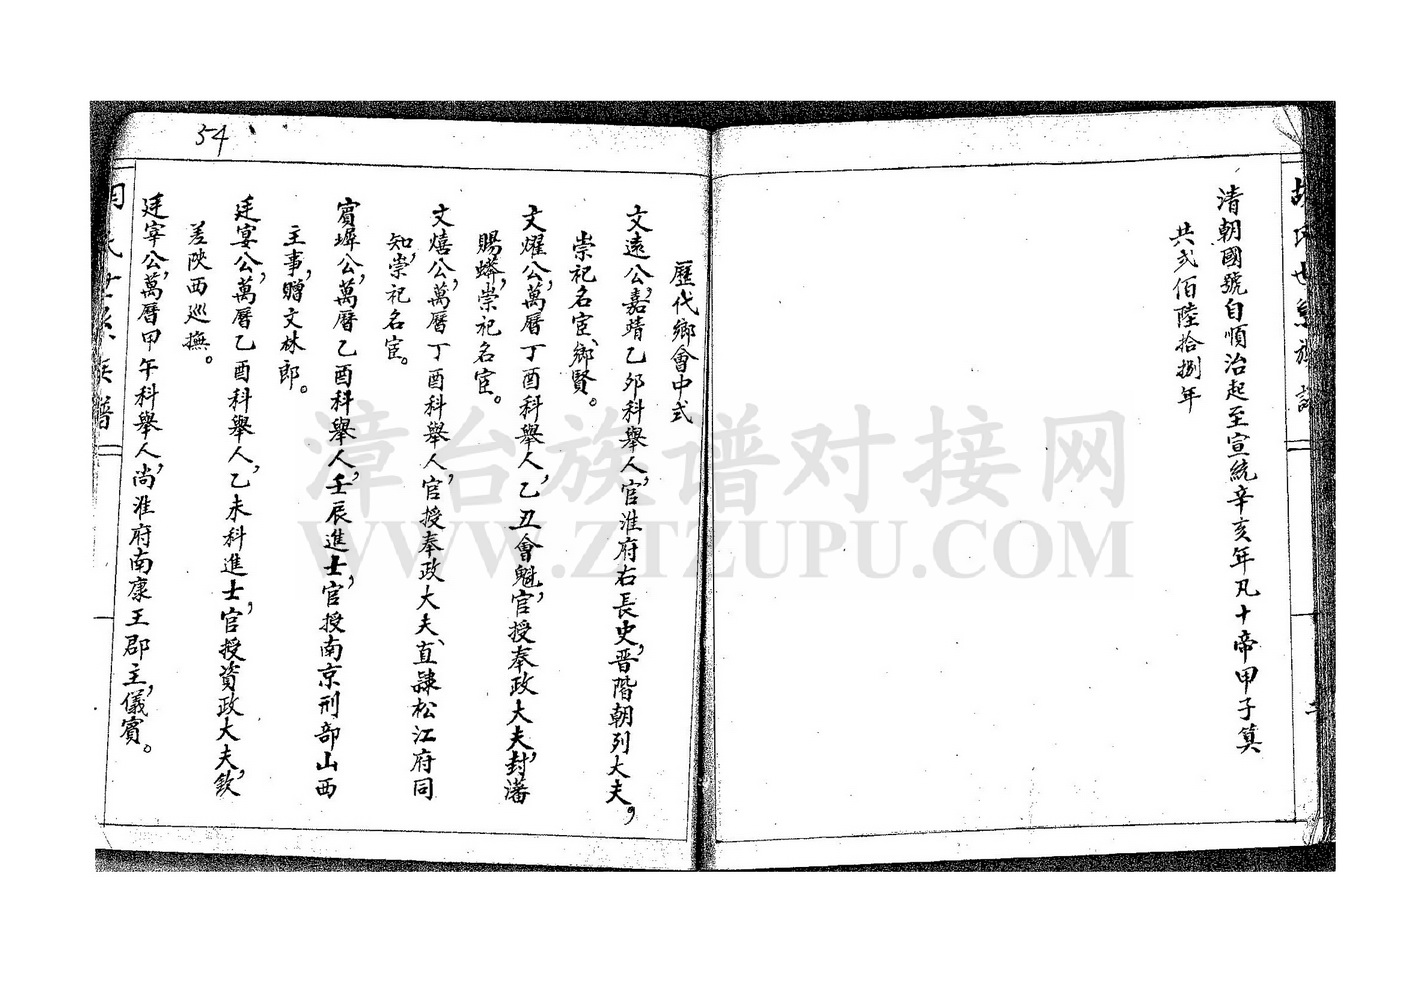 胡氏世系族譜
二
清朝國號自順治起至宣統辛亥年凡十帝甲子算
共弍佰陸拾捌年
歷代鄉會中式
文遠公,嘉靖乙夘科舉人,官淮府右長史,晋階朝列大夫,
崇祀名宦、鄉賢。
文燿公,萬曆丁酉科舉人,乙丑會魁,官授奉政大夫,封藩
賜蟒,崇祀名宦。
文熺公,萬曆丁酉科舉人,官授奉政大夫、直隸松江府同
知,崇祀名宦。
賓墀公,萬曆乙酉科舉人,壬辰進士,官授南京刑部山西
主事,贈文林郎。
廷宴公,萬曆乙酉科舉人,乙未科進士,官授資政大夫,欽
差陝西巡撫。
廷宰公,萬曆甲午科舉人,尚淮府南康王郡主,儀賓。
54
漳台族谱对接网
WWW.ZTZUPU.COM